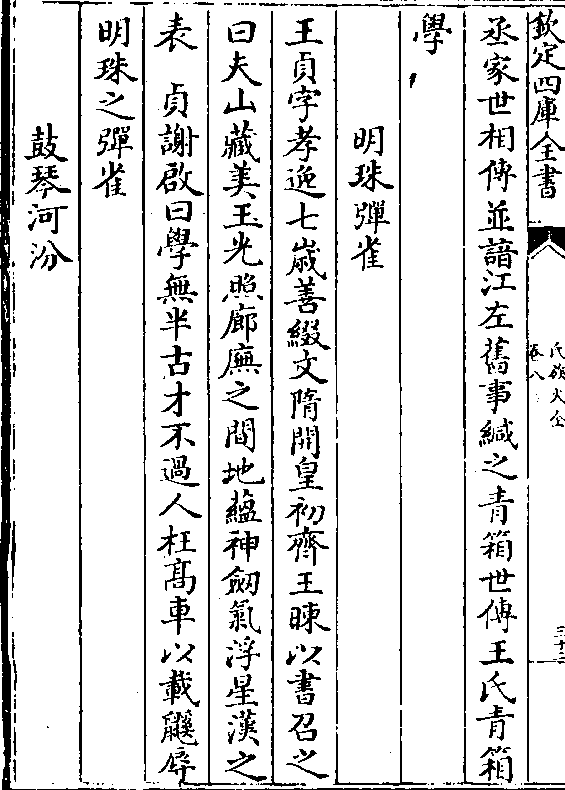 欽定四庫全書
氏族大全
卷八
三十三
丞家世相傳並諳江左舊事緘之青箱世傳王氏青箱
學
明珠彈雀
王貞字孝逸七歲善綴文隋開皇初齊王暕以書召之
曰夫山藏美玉光照廊廡之間地蘊神劔氣浮星漢之
表 貞謝啟曰學無半古才不過人枉髙車以載鼷辱
明珠之彈雀
鼓琴河汾